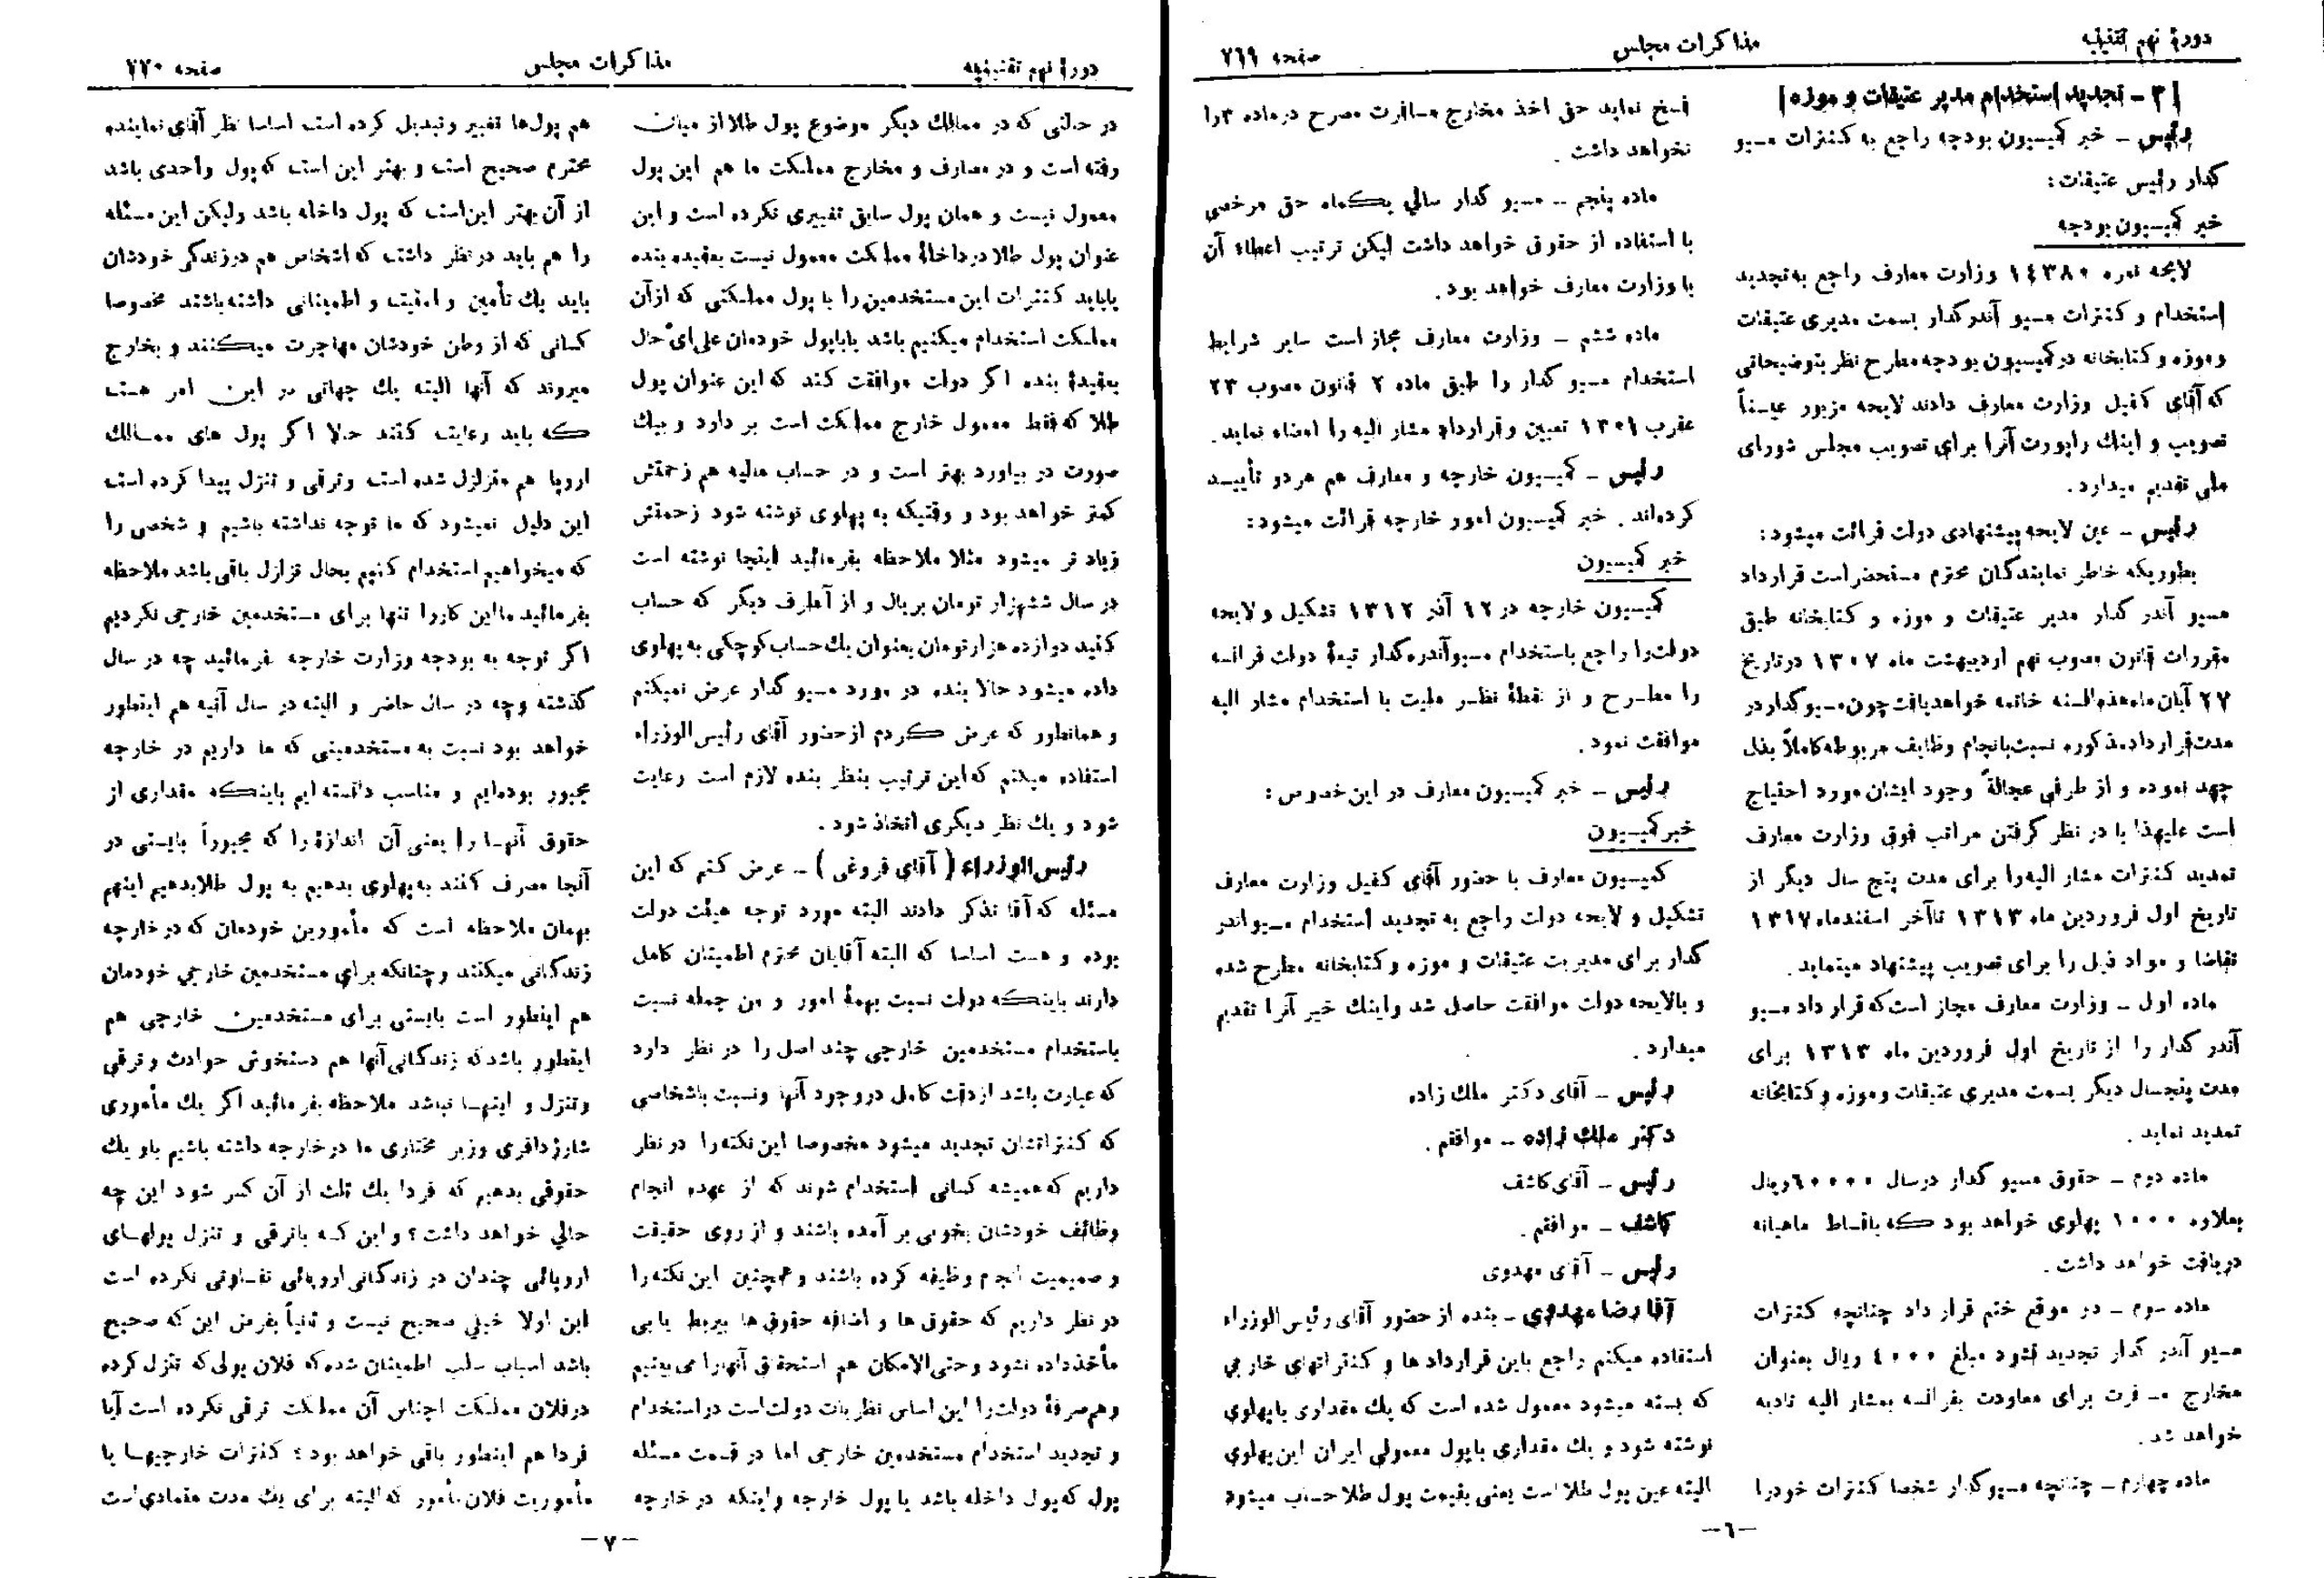 دورهٔ نهم تقنینیه
مذاکرات مجلس
صفحه ۷۶۹
[۳ - تجدید استخدام مدیر عتیقات و موزه]
رئیس - خبر کمیسیون بودجه راجع به کنترات مسیو
گدار رئیس عتیقات:
خبر کمیسیون بودجه
لایحه نمره ۱۴۳۸۰ وزارت معارف راجع به تجدید
استخدام و کنترات مسیو آندرگدار بسمت مدیری عتیقات
و موزه و کتابخانه در کمیسیون بودجه مطرح نظر بتوضیحاتی
که آقای کفیل وزارت معارف دادند لایحه مزبور عیناً
تصویب و اینک راپورت آنرا برای تصویب مجلس شورای
ملی تقدیم میدارد.
رئیس - عین لایحه پیشنهادی دولت قرائت میشود:
بطوریکه خاطر نمایندگان محترم مستحضر است قرارداد
مسیو آندر گدار مدیر عتیقات و موزه و کتابخانه طبق
مقررات قانون مصوب نهم اردیبهشت ماه ۱۳۰۷ در تاریخ
۲۷ آبان ماه هذه السنه خاتمه خواهد یافت چون مسیو گدار در
مدت قرارداد مذکوره نسبت بانجام وظایف مربوطه کاملاً بذل
جهد نموده و از طرفی عجالةً وجود ایشان مورد احتیاج
است علیهذا با در نظر گرفتن مراتب فوق وزارت معارف
تمدید کنترات مشار الیه را برای مدت پنج سال دیگر از
تاریخ اول فروردین ماه ۱۳۱۳ تا آخر اسفندماه ۱۳۱۷
تقاضا و مواد ذیل را برای تصویب پیشنهاد مینماید.
ماده اول - وزارت معارف مجاز است که قرار داد مسیو
آندر گدار را از تاریخ اول فروردین ماه ۱۳۱۳ برای
مدت پنجسال دیگر بسمت مدیری عتیقات و موزه و کتابخانه
تمدید نماید.
ماده دوم - حقوق مسیو گدار درسال ۶۰۰۰۰ ریال
بعلاوه ۱۰۰۰ پهلوی خواهد بود که باقساط ماهیانه
دریافت خواهد داشت.
ماده سوم - در موقع ختم قرار داد چنانچه کنترات
مسیو آندر گدار تجدید نشود مبلغ ۴۰۰۰ ریال بعنوان
مخارج مسافرت برای معاودت بفرانسه بمشار الیه تادیه
خواهد شد.
ماده چهارم - چنانچه مسیو گدار شخصا کنترات خود را
فسخ نماید حق اخذ مخارج مسافرت مصرح در ماده ۳ را
نخواهد داشت.
ماده پنجم - مسیو گدار سالی یکماه حق مرخصی
با استفاده از حقوق خواهد داشت لیکن ترتیب اعطاء آن
با وزارت معارف خواهد بود.
ماده ششم - وزارت معارف مجاز است سایر شرایط
استخدام مسیو گدار را طبق ماده ۲ قانون مصوب ۲۳
عقرب ۱۳۰۱ تعیین و قرارداد مشار الیه را امضاء نماید.
رئیس - کمیسیون خارجه و معارف هم هر دو تأیید
کرده‌اند. خبر کمیسیون امور خارجه قرائت میشود:
خبر کمیسیون
کمیسیون خارجه در ۱۲ آذر ۱۳۱۲ تشکیل و لایحه
دولت را راجع باستخدام مسیو آندره گدار تبعهٔ دولت فرانسه
را مطرح و از نقطهٔ نظر ملیت با استخدام مشار الیه
موافقت نمود.
رئیس - خبر کمیسیون معارف در این خصوص:
خبر کمیسیون
کمیسیون معارف با حضور آقای کفیل وزارت معارف
تشکیل و لایحه دولت راجع به تجدید استخدام مسیو اندر
گدار برای مدیریت عتیقات و موزه و کتابخانه مطرح شده
و بالایحه دولت موافقت حاصل شد و اینک خبر آنرا تقدیم
میدارد.
رئیس - آقای دکتر ملک زاده
دکتر ملک زاده - موافقم.
رئیس - آقای کاشف
کاشف - موافقم.
رئیس - آقای مهدوی
آقا رضا مهدوی - بنده از حضور آقای رئیس الوزراء
استفاده میکنم راجع باین قرارداد ها و کنتراتهای خارجی
که بسته میشود معمول شده است که یک مقداری با پهلوی
نوشته شود و یک مقداری با پول معمولی ایران این پهلوی
البته عین پول طلا است یعنی بقیمت پول طلا حساب میشود
-۶-
دورهٔ نهم تقنینیه
مذاکرات مجلس
صفحه ۷۷۰
در حالتی که در ممالک دیگر موضوع پول طلا از میان
رفته است و در مصارف و مخارج مملکت ما هم این پول
معمول نیست و همان پول سابق تغییری نکرده است و این
عنوان پول طلا در داخلهٔ مملکت معمول نیست بعقیده بنده
یا باید کنترات این مستخدمین را با پول مملکتی که از آن
مملکت استخدام میکنیم باشد یا با پول خودمان علی ای حال
بعقیدهٔ بنده اگر دولت موافقت کند که این عنوان پول
طلا که فقط معمول خارج مملکت است بر دارد و بیک
صورت در بیاورد بهتر است و در حساب مالیه هم زحمتش
کمتر خواهد بود و وقتیکه به پهلوی نوشته شود زحمتش
زیاد تر میشود مثلا ملاحظه بفرمائید اینجا نوشته است
در سال ششهزار تومان بریال و از آنطرف دیگر که حساب
کنید دوازده هزار تومان بعنوان یک حساب کوچکی به پهلوی
داده میشود حالا بنده در مورد مسیو گدار عرض نمیکنم
و همانطور که عرض کردم از حضور آقای رئیس الوزراء
استفاده میکنم که این ترتیب بنظر بنده لازم است رعایت
شود و یک نظر دیگری اتخاذ شود.
رئیس الوزراء (آقای فروغی) - عرض کنم که این
مسئله که آقا تذکر دادند البته مورد توجه هیئت دولت
بوده و هست اساسا که البته آقایان محترم اطمینان کامل
دارند باینکه دولت نسبت بهمهٔ امور و من جمله نسبت
باستخدام مستخدمین خارجی چند اصل را در نظر دارد
که عبارت باشد از دقت کامل در وجود آنها و نسبت باشخاصی
که کنتراتشان تجدید میشود مخصوصا این نکته را در نظر
داریم که همیشه کسانی استخدام شوند که از عهده انجام
وظائف خودشان بخوبی بر آمده باشند و از روی حقیقت
و صمیمیت انجام وظیفه کرده باشند و همچنین این نکته را
در نظر داریم که حقوق ها و اضافه حقوق ها بیربط یا بی
مأخذ داده نشود و حتی الامکان هم استحقاق آنها را می بینیم
و هم صرفهٔ دولت را این اساس نظریات دولت است در استخدام
و تجدید استخدام مستخدمین خارجی اما در قسمت مسئله
پول که پول داخله باشد یا پول خارجه و اینکه در خارجه
هم پول‌ها تغییر و تبدیل کرده است اساسا نظر آقای نماینده
محترم صحیح است و بهتر این است که پول واحدی باشد
از آن بهتر این است که پول داخله باشد ولیکن این مسئله
را هم باید در نظر داشت که اشخاص هم در زندگی خودشان
باید یک تأمین و امنیت و اطمینانی داشته باشند مخصوصا
کسانی که از وطن خودشان مهاجرت میکنند و بخارج
میروند که آنها البته یک جهاتی در این امر هست
که باید رعایت کنند حالا اگر پول های ممالک
اروپا هم متزلزل شده است و ترقی و تنزل پیدا کرده است
این دلیل نمیشود که ما توجه نداشته باشیم و شخصی را
که میخواهیم استخدام کنیم بحال تزلزل باقی باشد ملاحظه
بفرمائید ما این کار را تنها برای مستخدمین خارجی نکردیم
اگر توجه به بودجه وزارت خارجه بفرمائید چه در سال
گذشته و چه در سال حاضر و البته در سال آتیه هم اینطور
خواهد بود نسبت به مستخدمینی که ما داریم در خارجه
مجبور بوده‌ایم و مناسب دانسته ایم باینکه مقداری از
حقوق آنها را یعنی آن اندازهٔ را که مجبوراً بایستی در
آنجا مصرف کنند به پهلوی بدهیم به پول طلا بدهیم اینهم
بهمان ملاحظه است که مأمورین خودمان که در خارجه
زندگانی میکنند و چنانکه برای مستخدمین خارجی خودمان
هم اینطور است بایستی برای مستخدمین خارجی هم
اینطور باشد که زندگانی آنها هم دستخوش حوادث و ترقی
و تنزل و اینها نباشد ملاحظه بفرمائید اگر یک مأموری
شارژدافری وزیر مختاری ما در خارجه داشته باشیم باو یک
حقوقی بدهیم که فردا یک ثلث از آن کسر شود این چه
حالی خواهد داشت؟ و این که با ترقی و تنزل پولهای
اروپائی چندان در زندگانی اروپائی تفاوتی نکرده است
این اولا خیلی صحیح نیست و ثانیاً بفرض این که صحیح
باشد اسباب سلب اطمینان شده که فلان پولی که تنزل کرده
در فلان مملکت اجناس آن مملکت ترقی نکرده است آیا
فردا هم اینطور باقی خواهد بود؟ کنترات خارجیها یا
مأموریت فلان مأمور که البته برای یک مدت متمادی است
-۷-